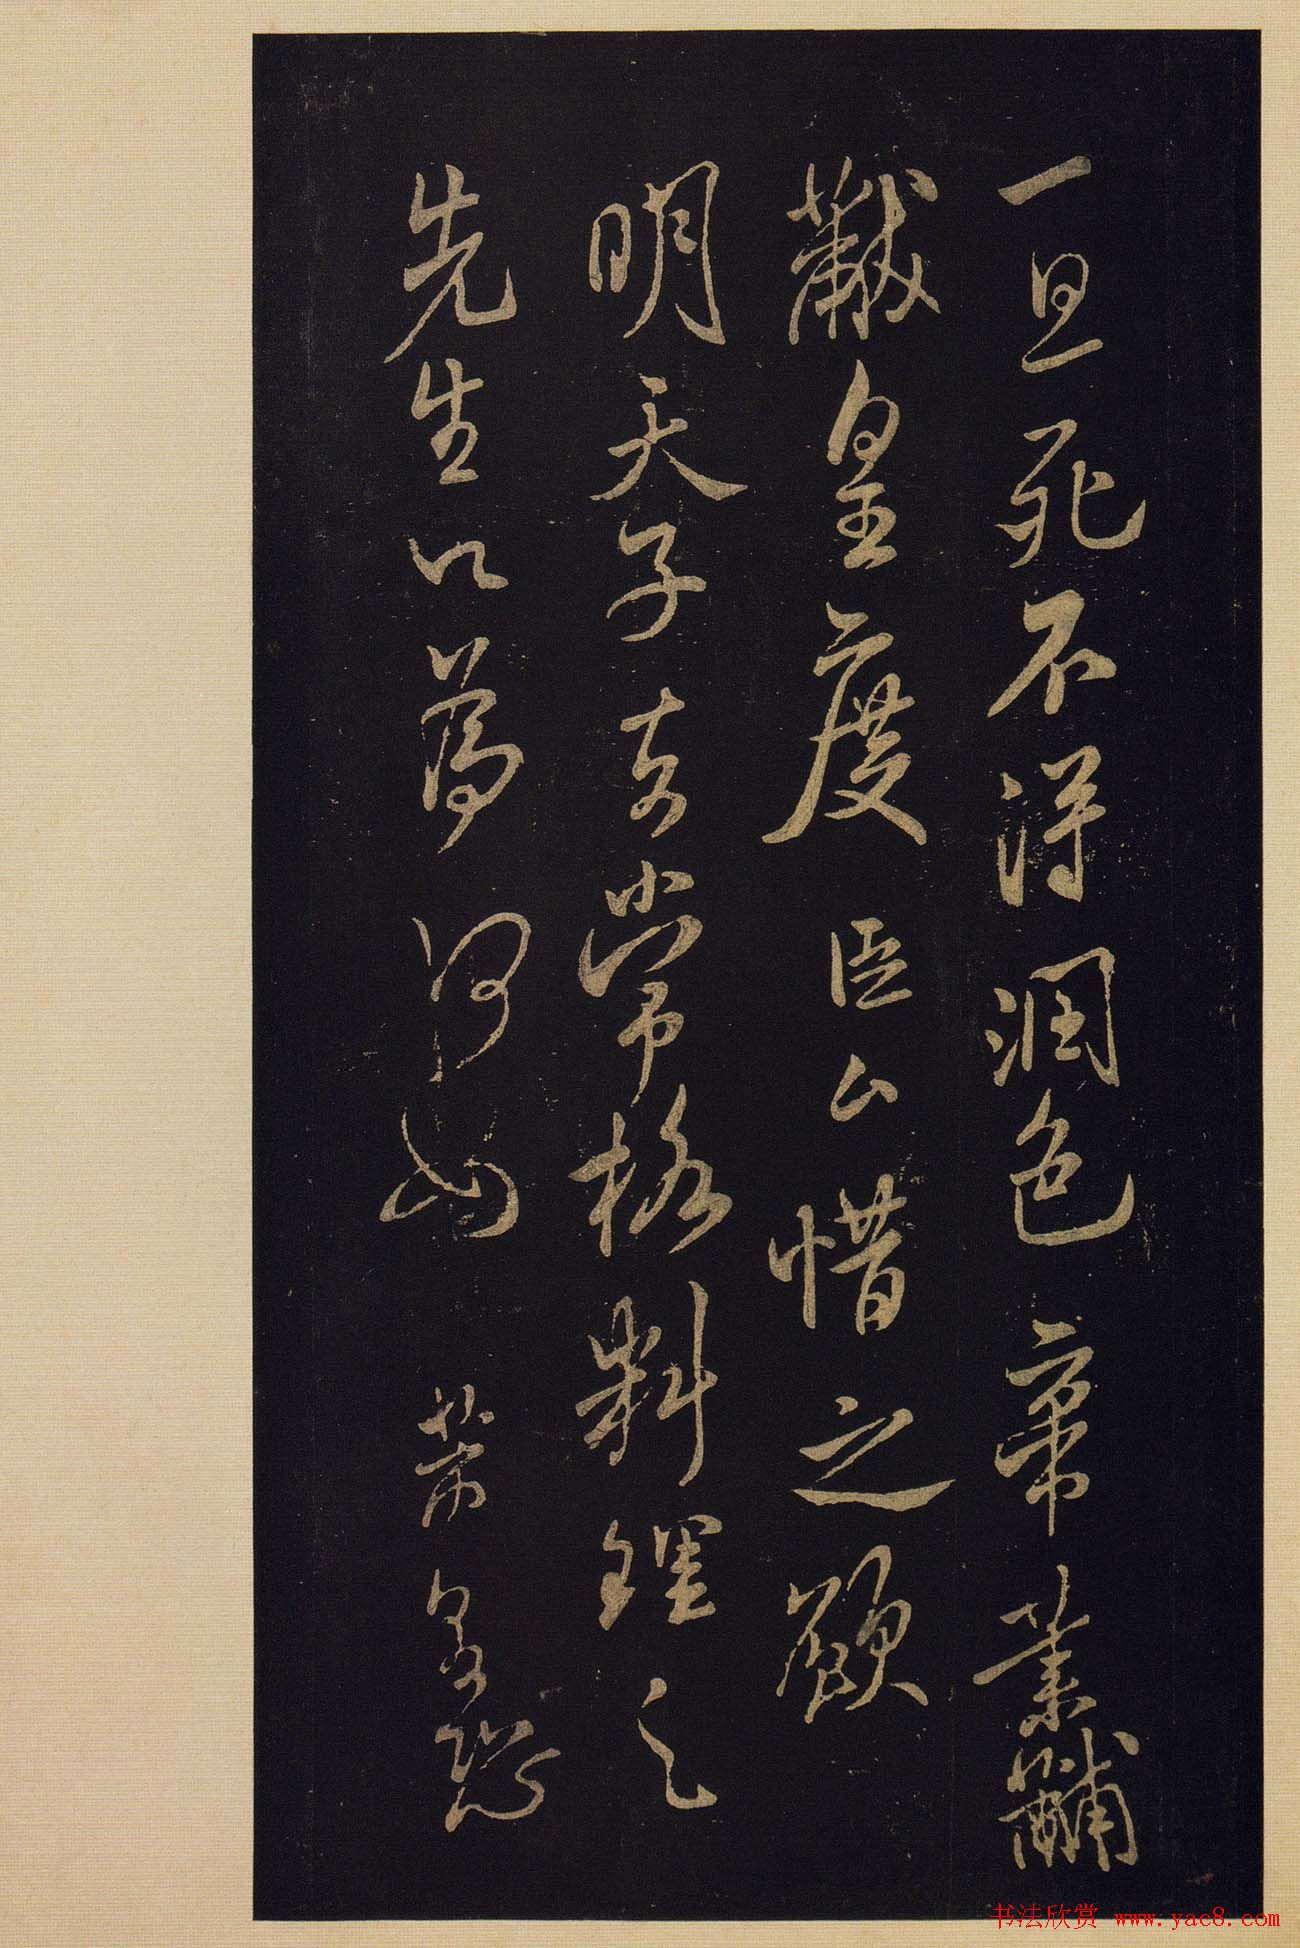 一旦死不得润色帝業黼
黻皇度臣公惜之願
明天子去常格料理之
先生以為何如芾皇恐
书法欣赏 www.yac8.com